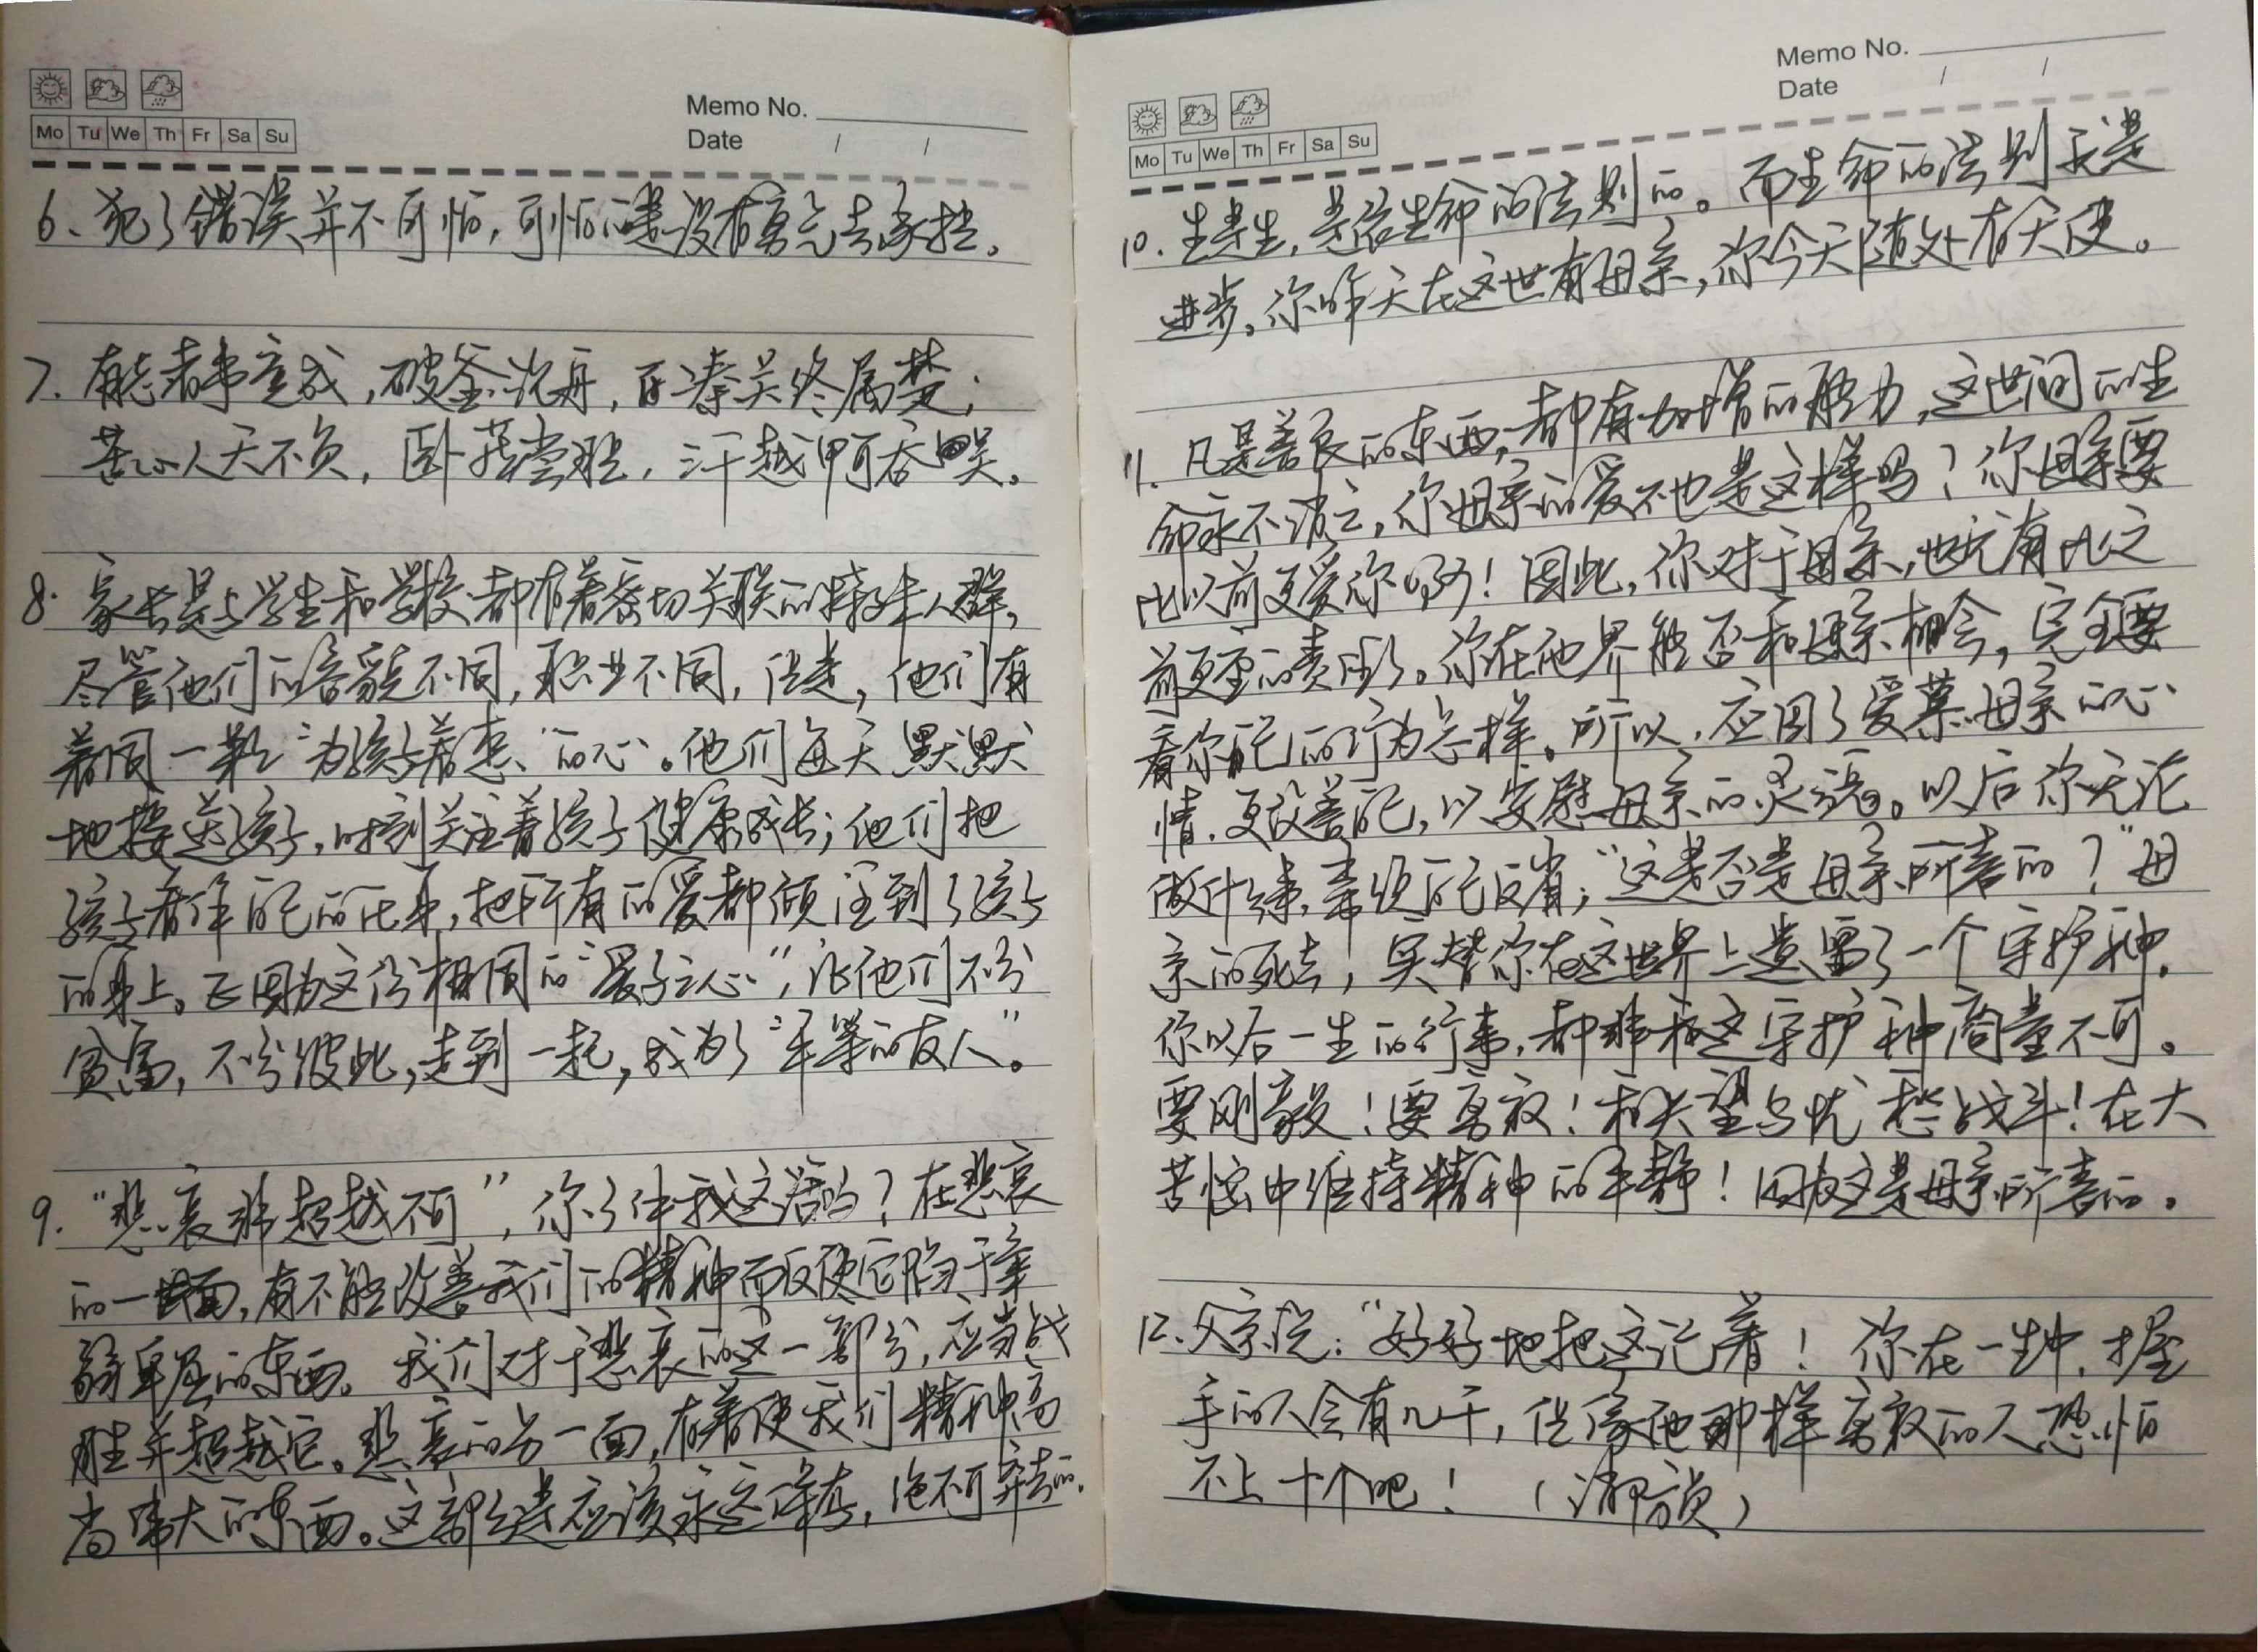 Memo No.
Mo Tu We Th Fr Sa Su
Date / /
6、犯了错误并不可怕，可怕的是没有勇气去承担。
7. 有志者事竟成，破釜沉舟，百二秦关终属楚；
苦心人天不负，卧薪尝胆，三千越甲可吞吴。
8. 家长是与学生和学校都有着密切关联的特殊人群，
尽管他们的容貌不同，职业不同，但是，他们有
着同一颗“为孩子着想”的心。他们每天默默
地接送孩子，时刻关注着孩子健康成长；他们把
孩子看作自己的化身，把所有的爱都倾注到了孩子
的身上。正因为这份相同的“爱子之心”，让他们不分
贫富，不分彼此，走到一起，成为了“平等的友人”。
9. “悲哀非超越不可”，你了件我这话吗？在悲哀
的一面，有不能改善我们的精神而反使它陷于柔
弱卑屈的东西。我们对于悲哀的这一部分，应当战
胜并超越它。悲哀的另一面，有着使我们精神高
尚伟大的东西。这部分是应该永远保存，绝不可弃去的。
Memo No.
Date / /
Mo Tu We Th Fr Sa Su
10. 生是生，是依生命的法则的。而生命的法则无是
进步。你昨天在这世有母亲，你今天随处有天使。
11. 凡是善良的东西，都有加增的能力，这世间的生
命永不消亡，你母亲的爱不也是这样吗？你母亲要
比以前更爱你啊！因此，你对于母亲，也就有比之
前更重的责任了。你在他界能否和母亲相会，完全要
看你自己的行为怎样。所以，应因了爱慕母亲的心
情，更改善自己，以安慰母亲的灵魂。以后你无论
做什么事，需须自己反省；“这是否是母亲所喜的？”母
亲的死去，实替你在这世界上遗留了一个守护神。
你以后一生的行事，都非和这守护神商量不可。
要刚毅！要勇敢！和失望与忧愁战斗！在大
苦恼中维持精神的平静！因为这是母亲所喜的。
12. 父亲说：“好好地把这记着！你在一生中，握
手的人会有几千，但像他那样勇敢的人恐怕
不上十个吧！（消防员）